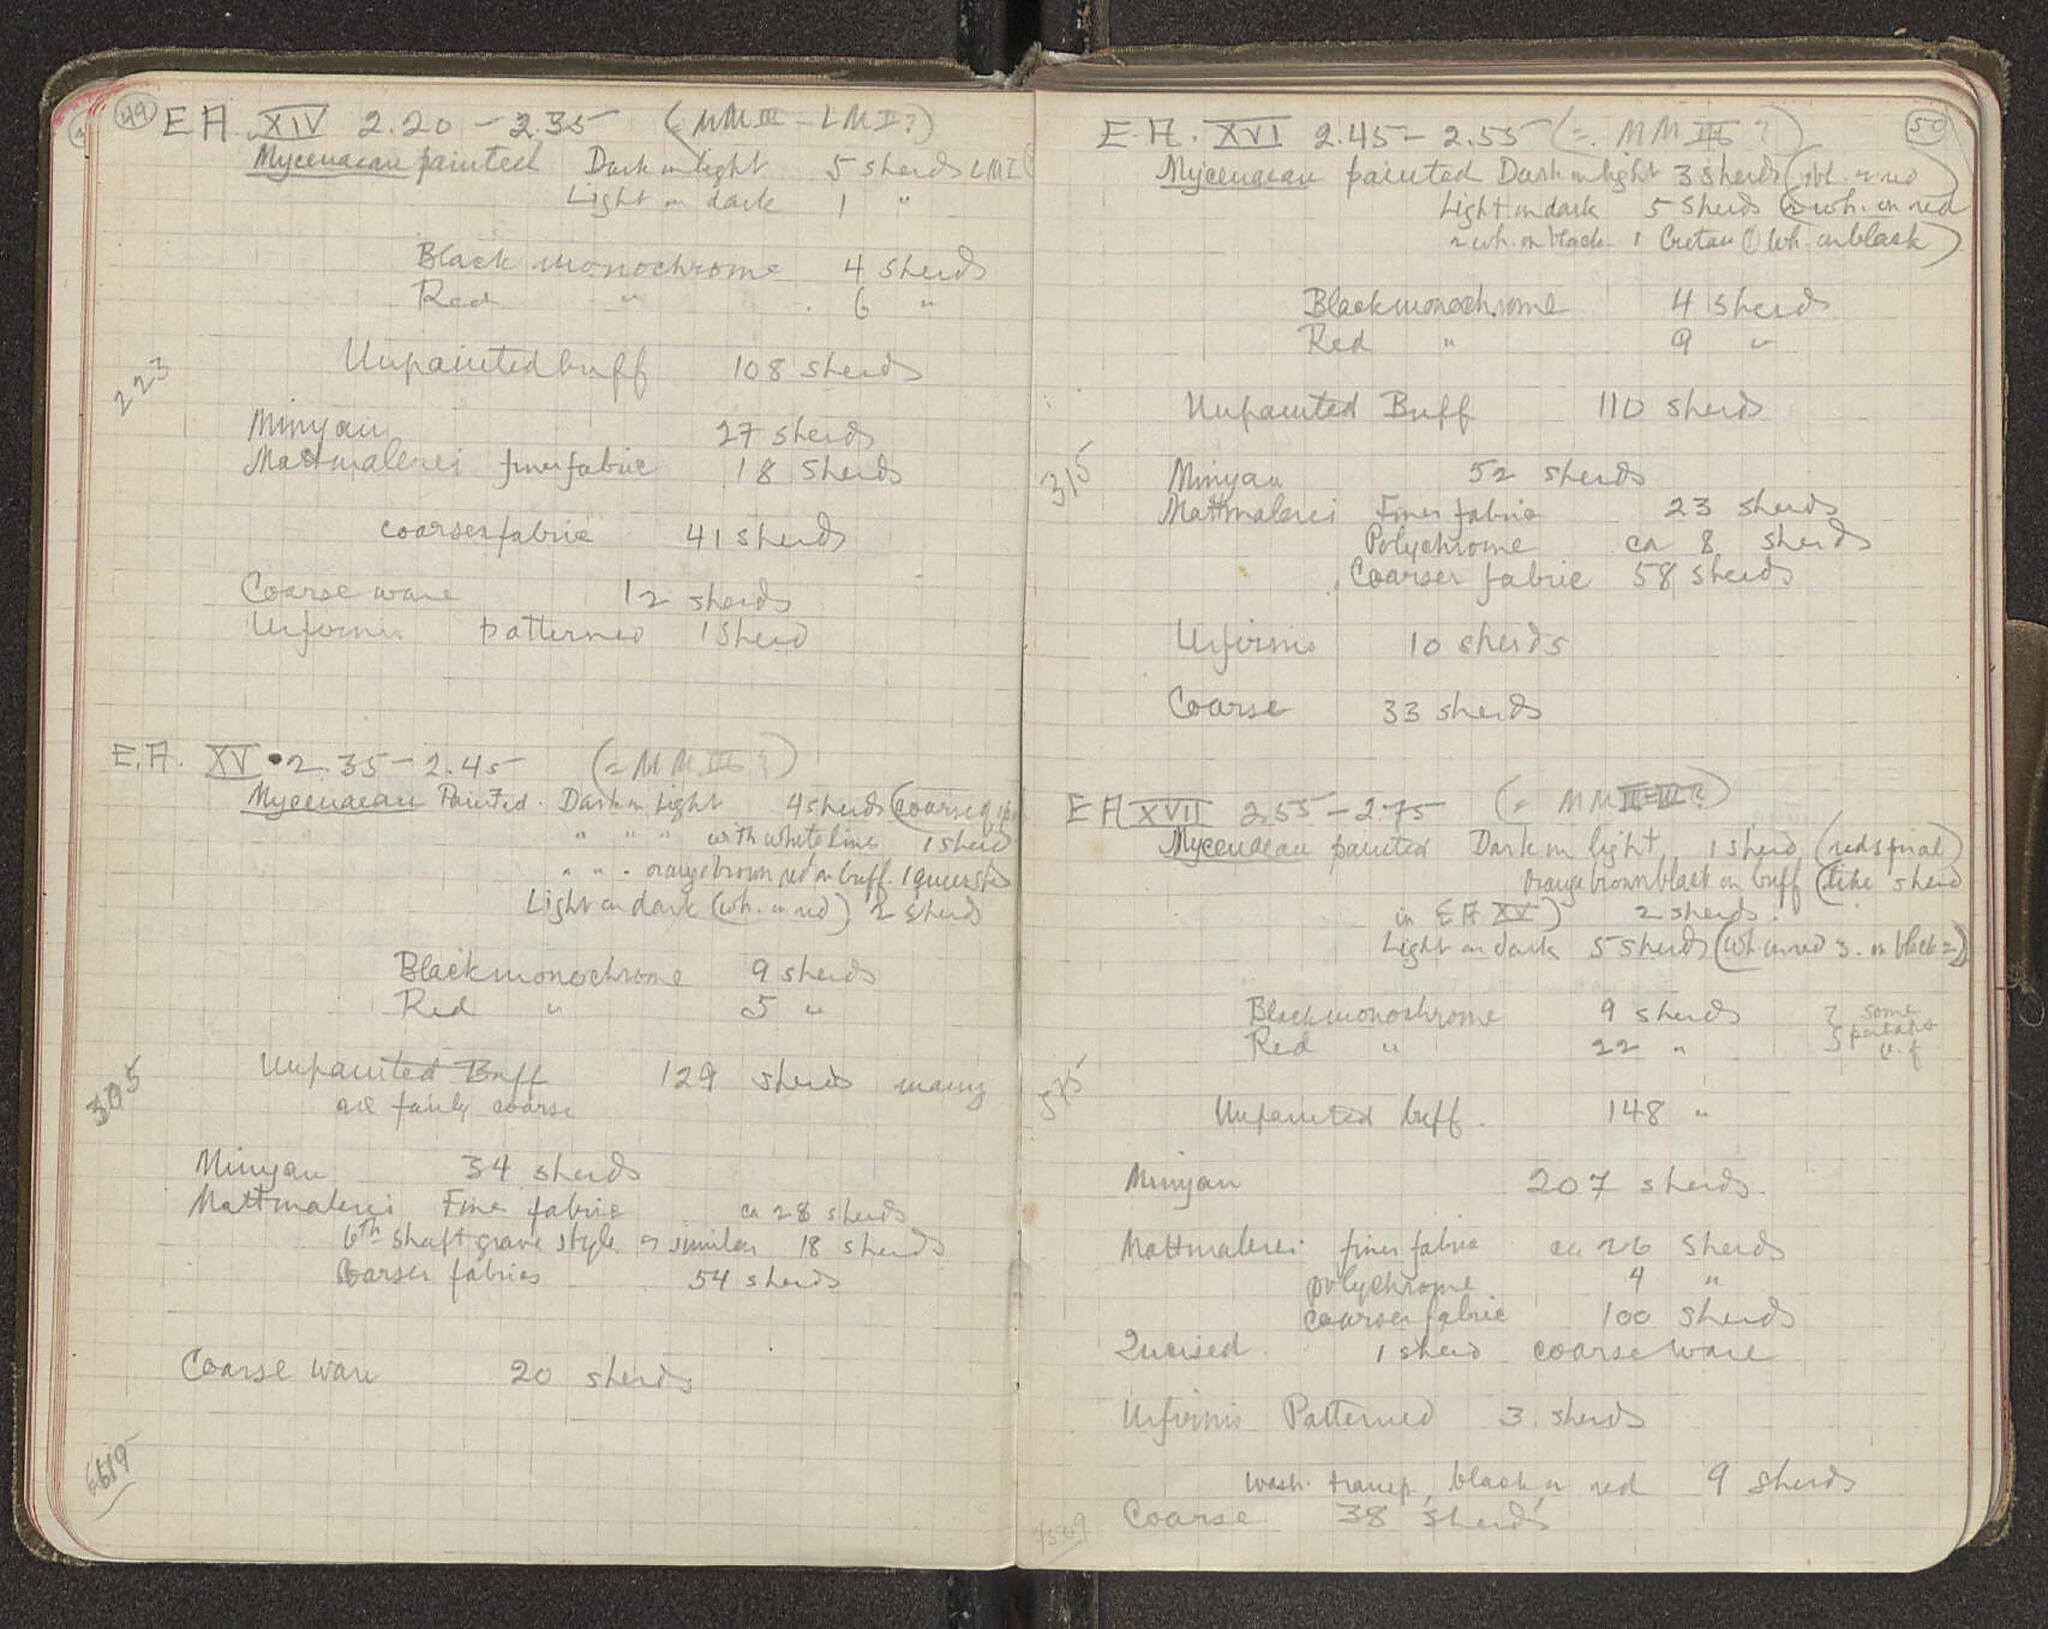 49
E.A. XIV 2.20 - 2.35 (= MM III - LM I?)
Mycenaean painted Dark on light 5 sherds LMI (
Light on dark 1 "
Black monochrome 4 sherds
Red " 6 "
Unpainted buff 108 sherds
223
Minyan 27 sherds
Mattmalerei finer fabric 18 sherds
coarser fabric 41 sherds
Coarse ware 12 sherds
Urfirnis patterned 1 sherd
E.A. XV 2.35 - 2.45 (= MM III ?)
Mycenaean Painted. Dark on Light 4 sherds (coarse
" " " with white line 1 sherd
" " " orange brown red on buff. 1 queer
Light on dark (wh. on red) 2 sherds
Black monochrome 9 sherds
Red " 5 "
Unpainted Buff 129 sherds many
are fairly coarse
305
Minyan 34 sherds
Mattmalerei Fine fabric ca 28 sherds
6th shaft grave style or similar 18 sherds
Coarser fabrics 54 sherds
Coarse ware 20 sherds
50
E.A. XVI 2.45 - 2.55 (= MM III ?)
Mycenaean painted Dark on light 3 sherds (1 bl. 2 red)
Light on dark 5 sherds (2 wh. on red
2 wh. on black 1 Cretan (?) wh. on black)
Black monochrome 4 sherds
Red " 9 "
Unpainted Buff 110 sherds
315
Minyan 52 sherds
Mattmalerei Finer fabric 23 sherds
Polychrome ca 8 sherds
Coarser fabric 58 sherds
Urfirnis 10 sherds
Coarse 33 sherds
E A XVII 2.55 - 2.75 (= MM II-III?)
Mycenaean painted Dark on light 1 sherd (red spiral)
orange brown black on buff (like sherd
in E A XV) 2 sherds.
Light on dark 5 sherds (wh. on red 3. on black 2)
Black monochrome 9 sherds } some
Red " 22 " } perhaps
U.f
575
Unpainted buff. 148 "
Minyan 207 sherds.
Mattmalerei finer fabric ca 26 sherds
polychrome 4 "
coarser fabric 100 sherds
Incised 1 sherd coarse ware
Urfirnis Patterned 3 sherds
wash. transp, black or red 9 sherds
Coarse 38 sherds